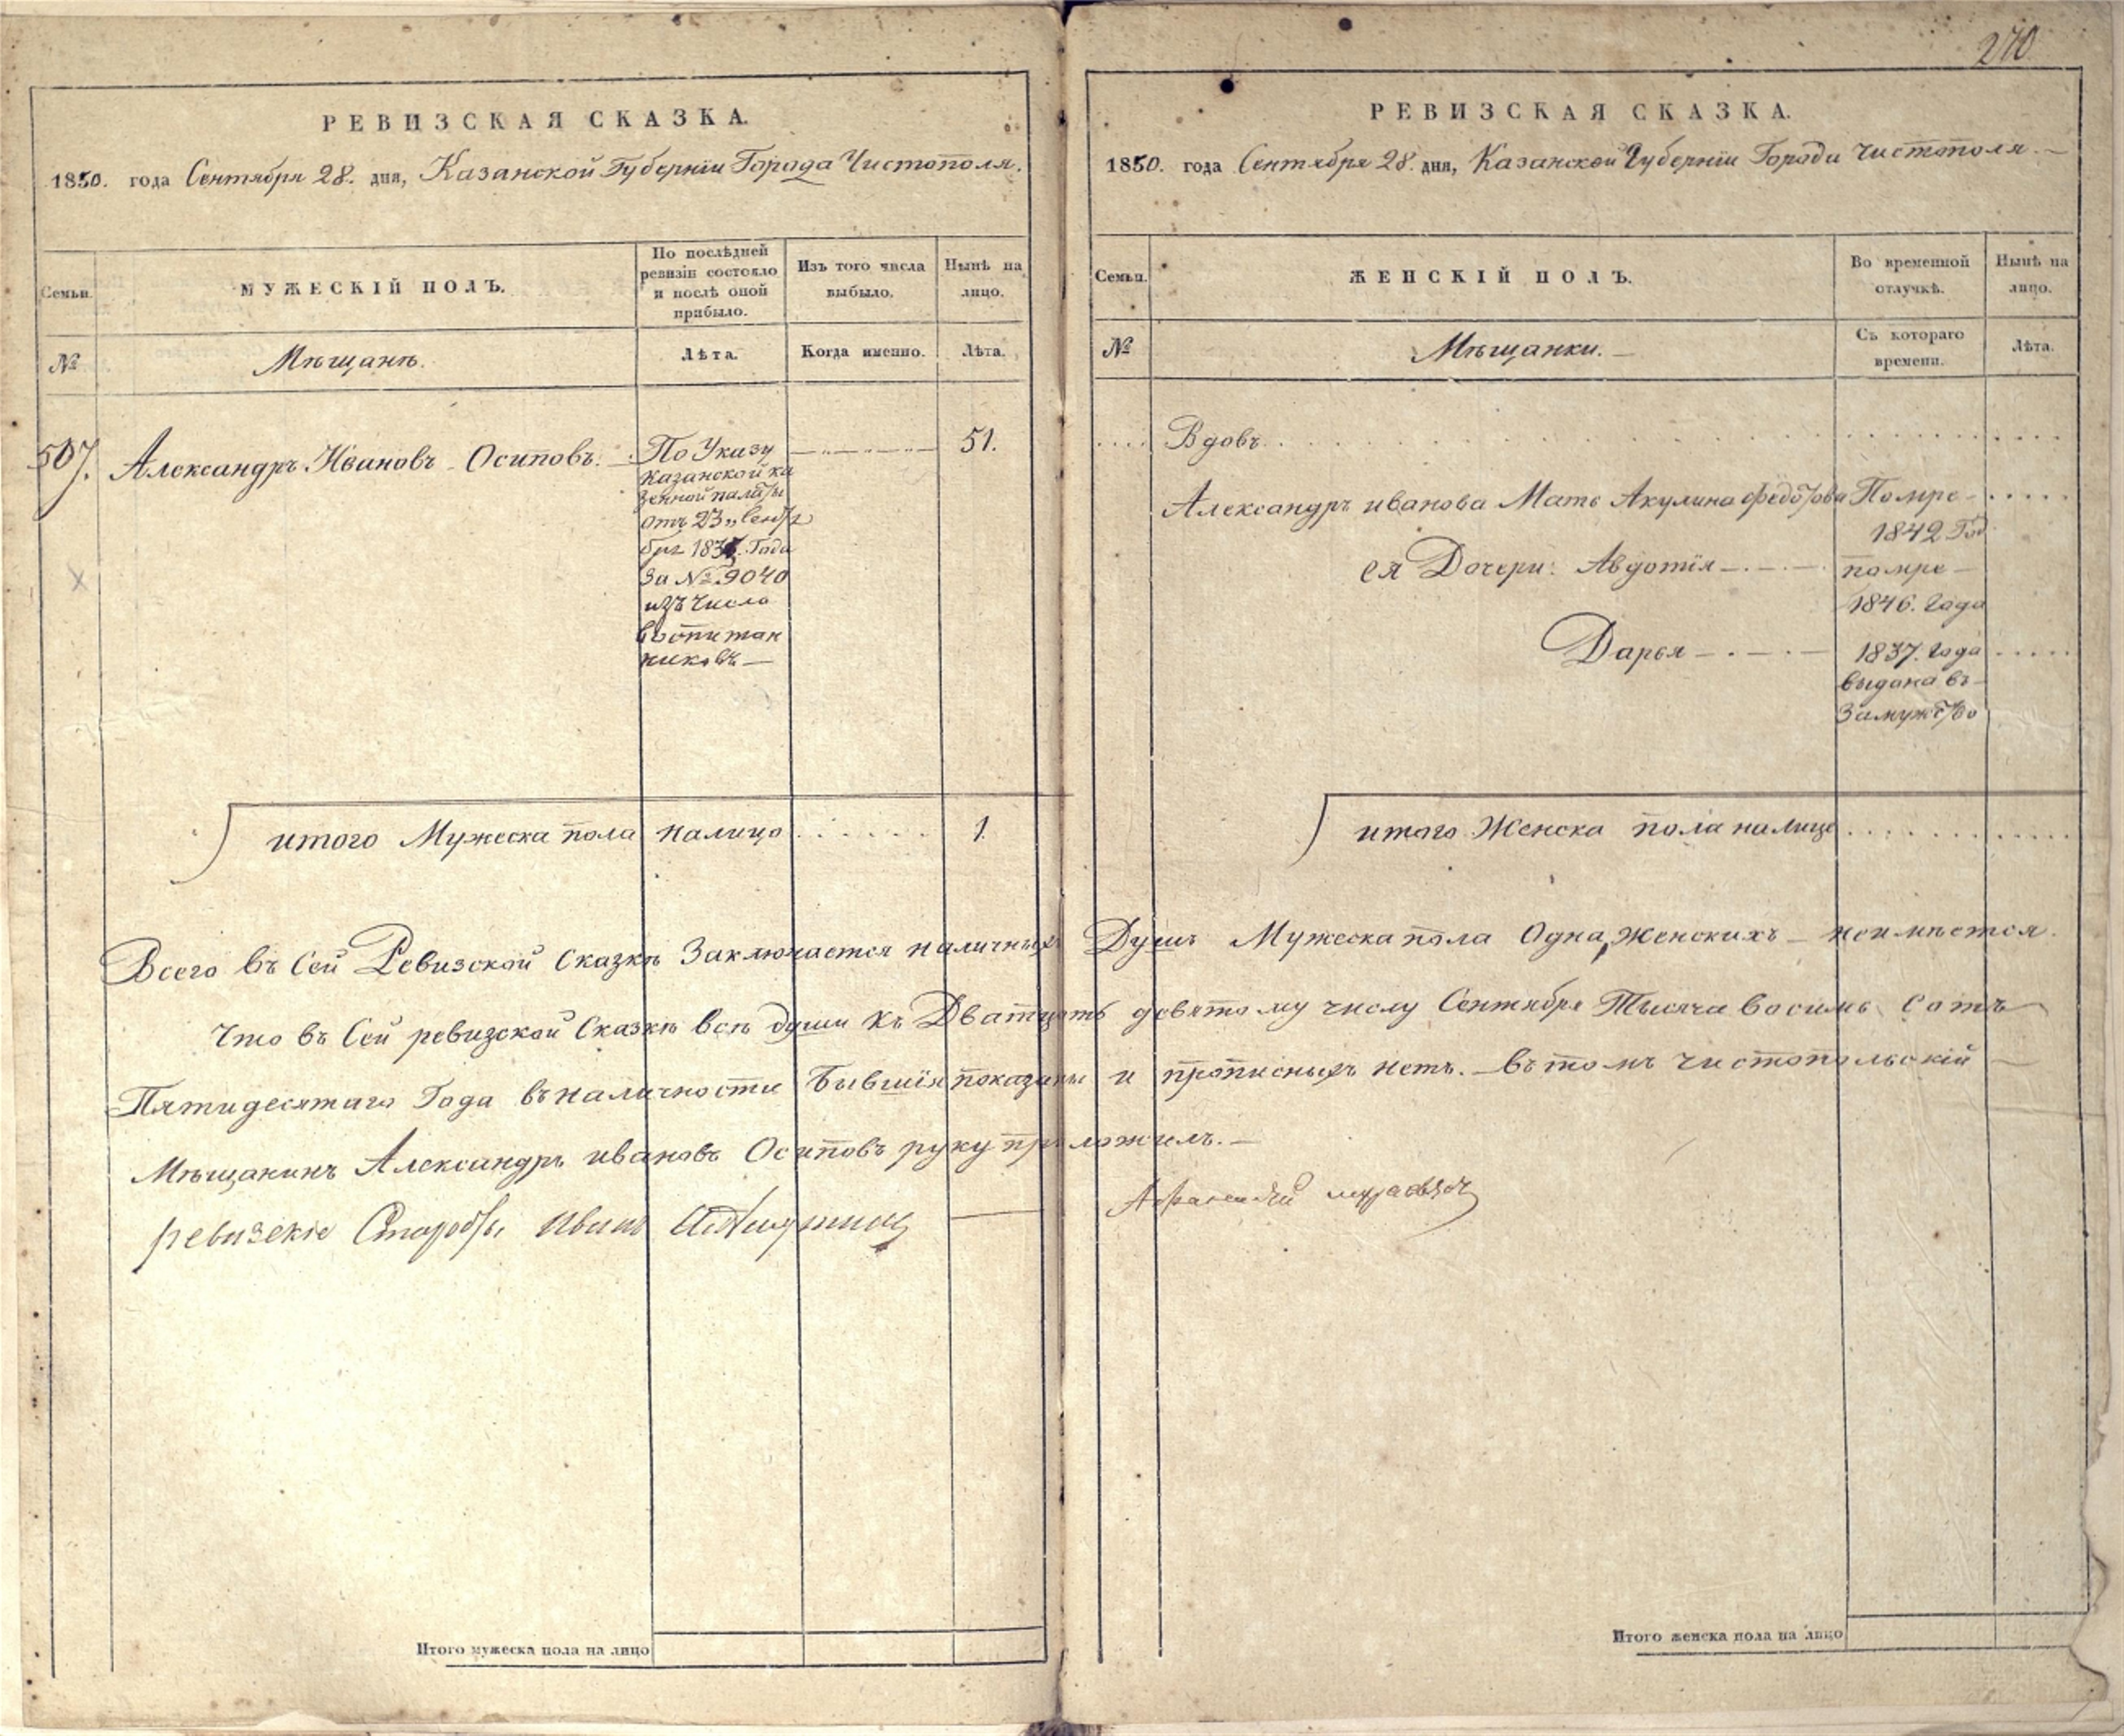 270
РЕВИЗСКАЯ СКАЗКА.
1850. года Сентября 28. дня, Казанской Губерніи Города Чистополя.
Семьи.
МУЖЕСКІЙ ПОЛЪ.
По послѣдней
ревизіи состояло
и послѣ оной
прибыло.
Изъ того числа
выбыло.
Нынѣ на
лицо.
№
Мѣщанѣ.
Лѣта.
Когда именно.
Лѣта.
507.
Александръ Ивановъ Осиповъ.
По Указу
Казанской ка
зенной палаты
отъ 23 Сентя
бря Года
За № 9040
изъ числа
воспитан
никовъ
51.
итого Мужеска пола налицо
1.
РЕВИЗСКАЯ СКАЗКА.
1850. года Сентября 28. дня, Казанской Губерніи Города Чистополя.
Семьи.
ЖЕНСКІЙ ПОЛЪ.
Во временной
отлучкѣ.
Нынѣ на
лицо.
№
Мѣщанки.
Съ котораго
времени.
Лѣта.
Вдовъ
Александръ иванова Мать Акулина Федотова Помре
1842 Год
ея Дочери: Авдотія помре
1846. Года
Дарья 1837. Года
выдана въ
Замужство
итого Женска пола налице
Всего въ Сей Ревизской Сказкѣ Заключается наличныхъ Душъ Мужеска пола Одна, Женскихъ неимѣется.
Что въ Сей ревизской Сказкѣ всѣ души къ Дватцать девятому числу Сентября Тысяча восимь сотъ
Пятидесятаго Года въ наличности Бывшія показаны и прописныхъ нетъ. въ томъ Чистопольскій
Мѣщанинъ Александръ ивановъ Осиповъ руку приложилъ.
ревизскіе Старосты Иванъ
Итого мужеска пола на лицо
Итого женска пола на лицо